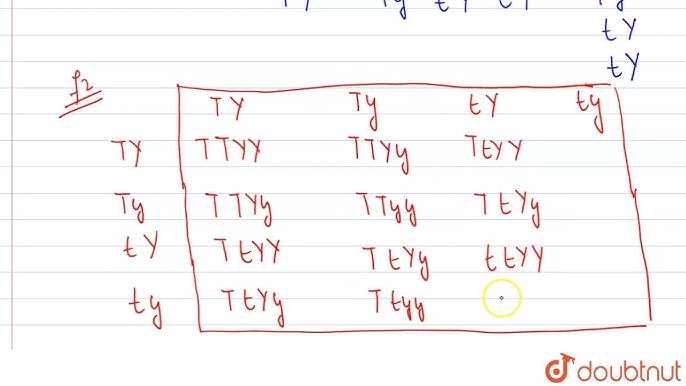 Ty tY tY
tY
tY
f2
TY Ty tY ty
TY TTYY TTYy TtYY
Ty TTYy TTyy TtYy
tY TtYY TtYy ttYY
ty TtYy Ttyy
doubtnut